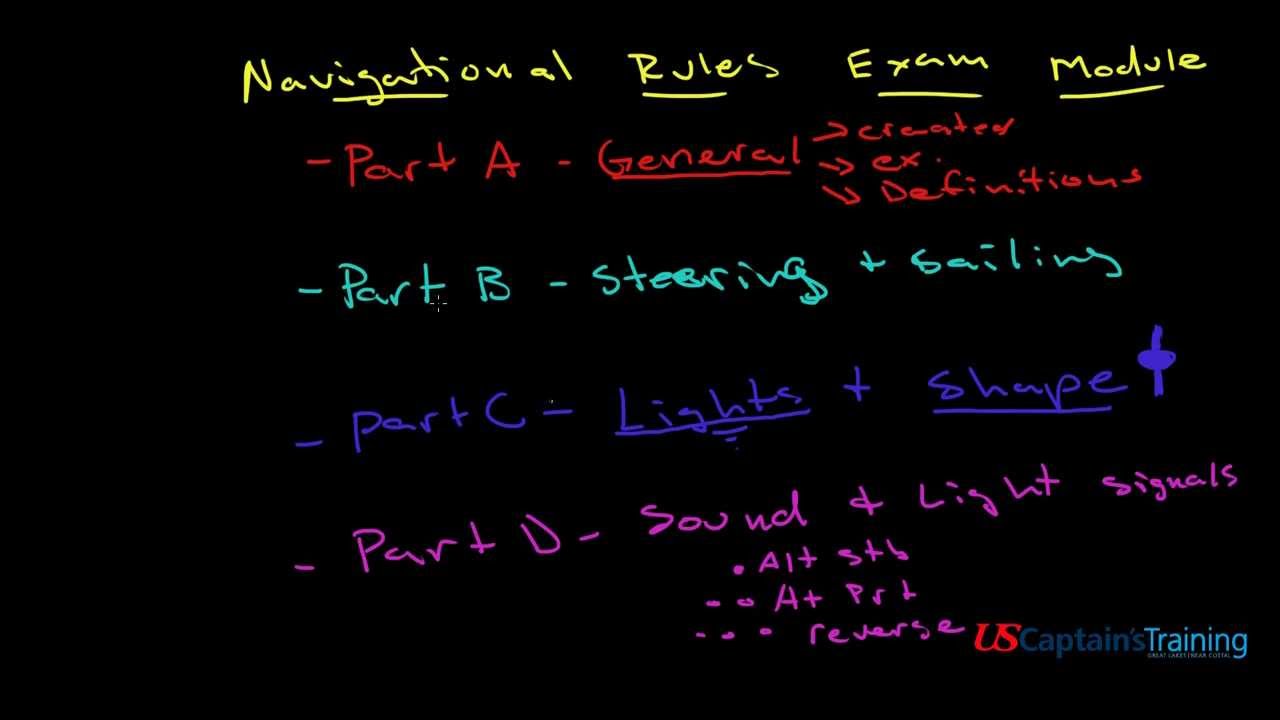 Navigational Rules Exam Module
- Part A - General → created
→ ex.
→ Definitions
- Part B - Steering + Sailing
- part C - Lights + Shape
- Part D - Sound & Light signals
• Alt stb
• • At Prt
• • • reverse
US Captain's Training
GREAT LAKES | NEAR COSTAL